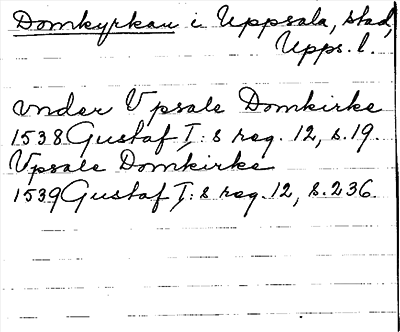 Domkyrkan i Uppsala, stad,
Upps. l.
vnder Vpsale Domkirke
1538 Gustaf I:s reg. 12, s. 19.
Vpsale Domkirke
1539 Gustaf I:s reg. 12, s. 236.